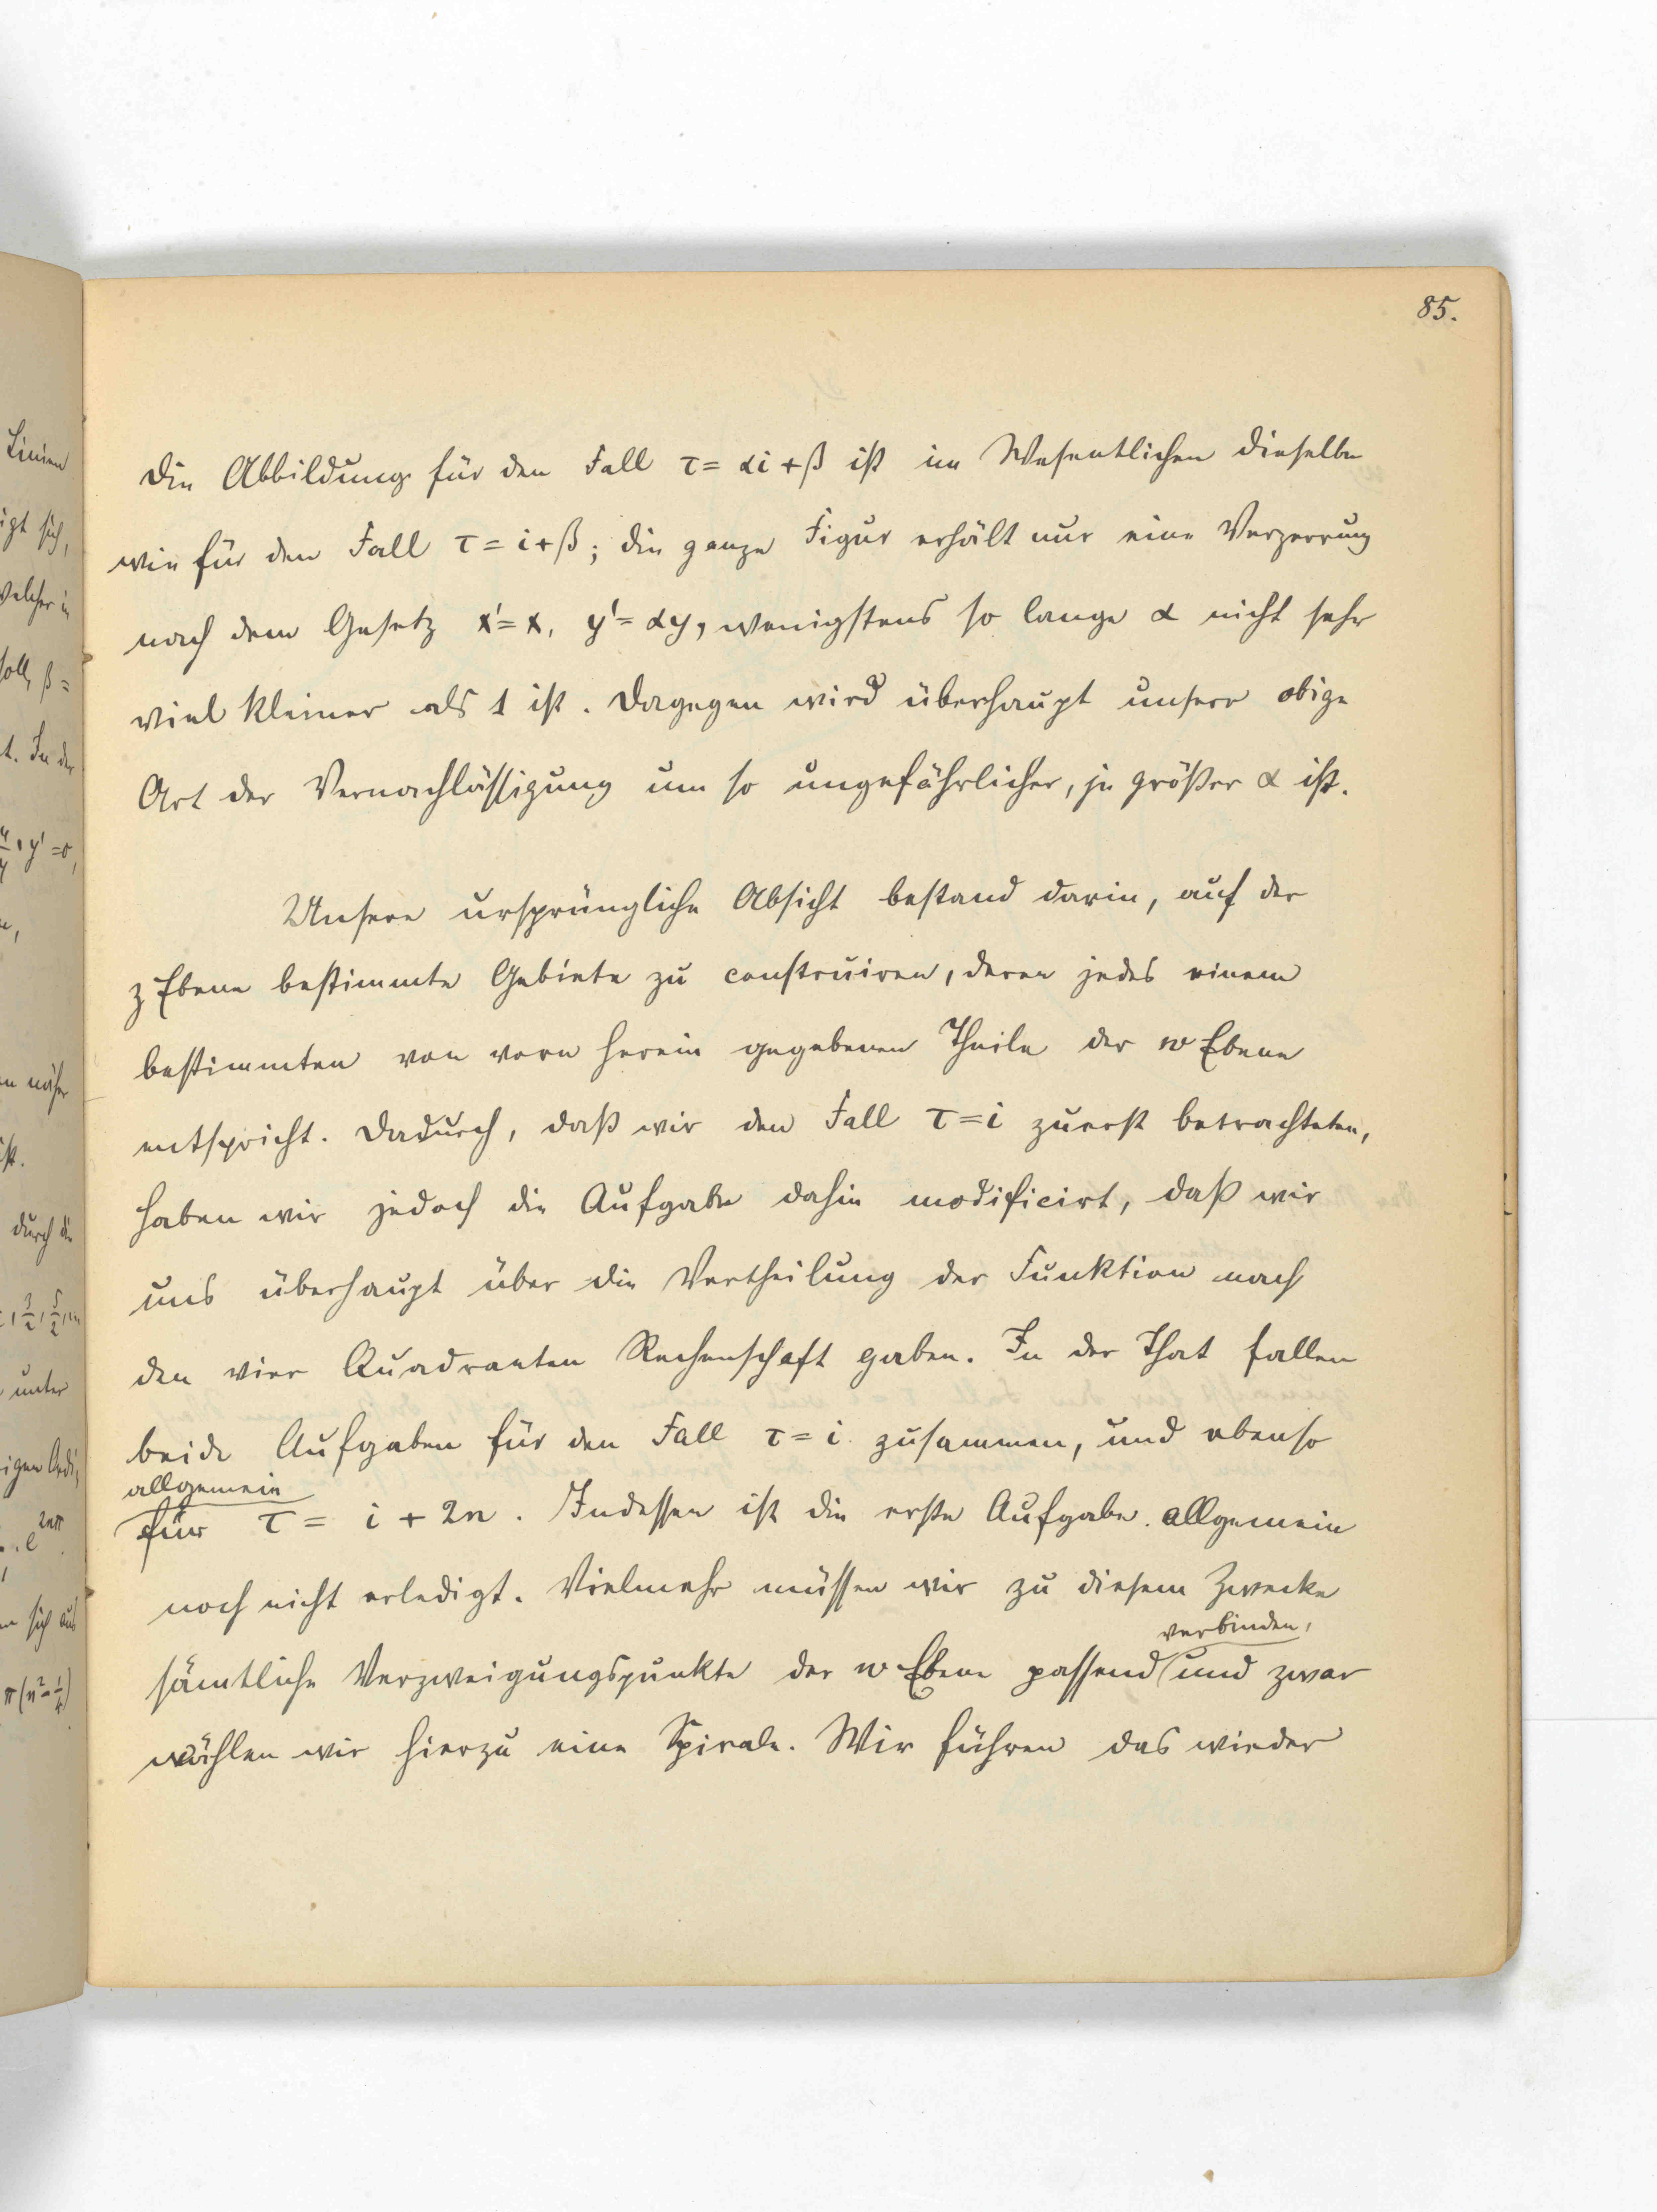 85.
Die Abbildung für den Fall τ = αi + β ist im Wesentlichen dieselbe
wie für den Fall τ = i + β; die ganze Figur erhält nur eine Verzerrung
nach dem Gesetz x' = x, y' = αy, wenigstens so lange α nicht sehr
viel kleiner als 1 ist. Dagegen wird überhaupt unsere obige
Art der Vernachlässigung um so ungefährlicher, je größer α ist.
Unsere ursprüngliche Absicht bestand darin, auf der
z Ebene bestimmte Gebiete zu construiren, deren jedes einem
bestimmten von vorn herein gegebenen Theile der w Ebene
entspricht. Dadurch, daß wir den Fall τ = i zuerst betrachteten,
haben wir jedoch die Aufgabe dahin modificirt, daß wir
uns überhaupt über die Vertheilung der Funktion nach
den vier Quadranten Rechenschaft gaben. In der That fallen
beide Aufgaben für den Fall τ = i zusammen, und ebenso
allgemein
für τ = i + 2n. Indessen ist die erste Aufgabe allgemein
noch nicht erledigt. Vielmehr müssen wir zu diesem Zwecke
verbinden,
sämtliche Verzweigungspunkte der w Ebene passend und zwar
wählen wir hierzu eine Spirale. Wir führen das wieder
Linien
igt sich,
Welcher in
soll, β =
t. In der
y' = 0,
n näher
ist.
durch die
3/2, 5/2,
unter
2nπ
sich aus
π(n² - 1/4)